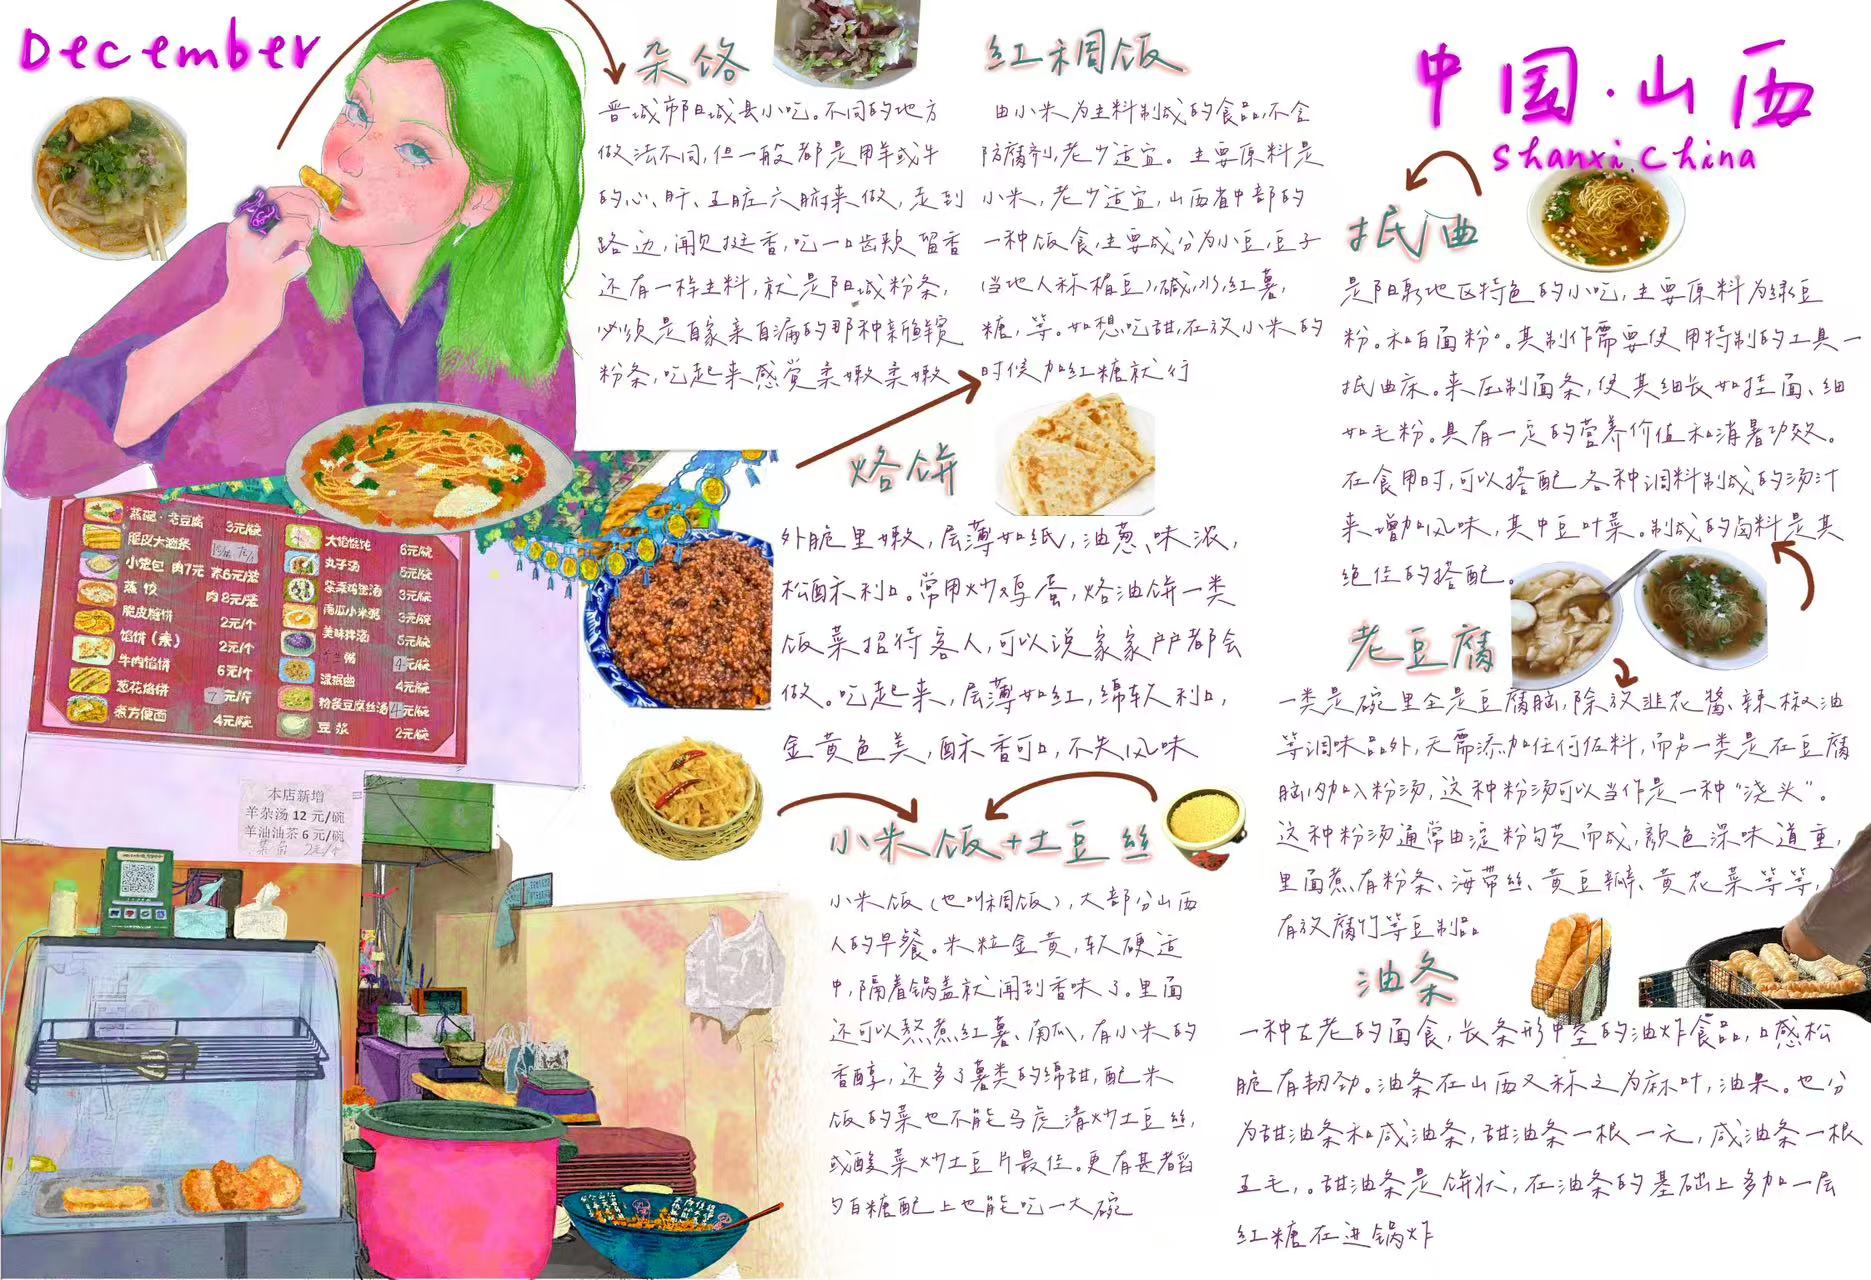 December
中国·山西
Shanxi.China
杂饹
晋城市阳城县小吃。不同的地方
做法不同,但一般都是用羊或牛
的心、肝、五脏六腑来做,走到
路边,闻见挺香,吃一口齿颊留香
还有一样主料,就是阳城粉条,
必须是自家亲自漏的那种新鲜
粉条,吃起来感觉柔嫩柔嫩
红稠饭
由小米为主料制成的食品,不含
防腐剂,老少适宜。主要原料是
小米,老少适宜,山西省中部的
一种饭食,主要成分为小豆,豆子
(当地人称植豆),碱,水,红薯,
糖,等。如想吃甜,在放小米的
时候加红糖就行
抿曲
是阳泉地区特色的小吃,主要原料为绿豆
粉。和白面粉。其制作需要使用特制的工具一
抿曲床。来压制面条,使其细长如挂面、细
如毛粉。具有一定的营养价值和消暑功效。
在食用时,可以搭配各种调料制成的汤汁
来增加风味,其中豆叶菜。制成的卤料是其
绝佳的搭配。
烙饼
外脆里嫩,层薄如纸,油葱、味浓,
松酥利口。常用炒鸡蛋,烙油饼一类
饭菜招待客人,可以说家家户户都会
做。吃起来,层薄如红,绵软利口,
金黄色美,酥香可口,不失风味
老豆腐
一类是碗里全是豆腐脑,除放韭花酱、辣椒油
等调味品外,无需添加任何佐料,而另一类是在豆腐
脑内加入粉汤,这种粉汤可以当作是一种“浇头”。
这种粉汤通常由淀粉勾芡而成,颜色深味道重,
里面煮有粉条、海带丝、黄豆瓣、黄花菜等等,
有放腐竹等豆制品
小米饭+土豆丝
小米饭(也叫稠饭),大部分山西
人的早餐。米粒金黄,软硬适
中,隔着锅盖就闻到香味了。里面
还可以熬煮红薯、南瓜,有小米的
香醇,还多了薯类的绵甜,配米
饭的菜也不能马虎清炒土豆丝,
或酸菜炒土豆片最佳。更有甚者舀
勺白糖配上也能吃一大碗
油条
一种古老的面食,长条形中空的油炸食品,口感松
脆有韧劲。油条在山西又称之为麻叶,油果。也分
为甜油条和咸油条,甜油条一根一元,咸油条一根
五毛,。甜油条是饼状,在油条的基础上多加一层
红糖在进锅炸
蒸碗·老豆腐 3元/碗
脆皮大油条
小笼包 肉7元 素6元/笼
蒸饺 肉8元/笼
脆皮糖饼 2元/个
馅饼(素) 2元/个
牛肉馅饼 6元/个
葱花馅饼 7元/斤
煮方便面 4元/碗
大馅馄饨 6元/碗
丸子汤 5元/碗
紫菜鸡蛋汤 3元/碗
南瓜小米粥 3元/碗
美味拌汤 5元/碗
粥 4元/碗
滚抿曲 4元/碗
粉浆豆腐丝汤 4元/碗
豆浆 2元/碗
本店新增
羊杂汤 12 元/碗
羊油油茶 6 元/碗
菜角 2元/个